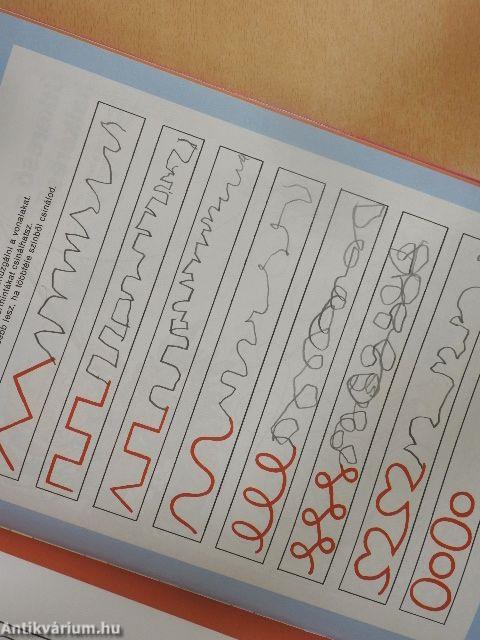 núzgálni a vonalakat.
rmintákat csinálhatsz.
ebb lesz, ha többféle színből csinálod.
Antikvárium.hu